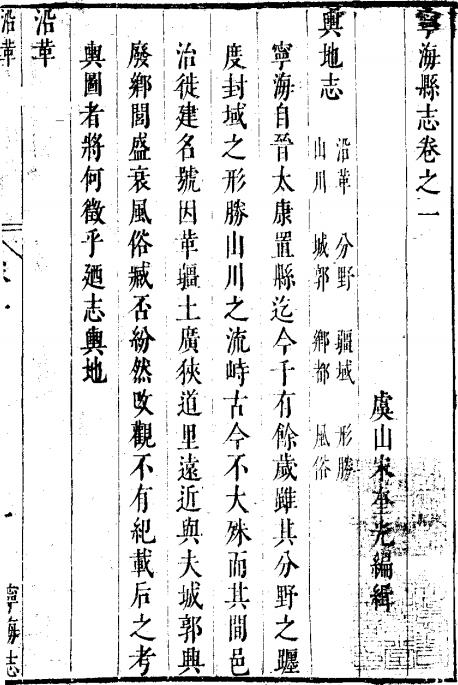 寧海縣志卷之一
虞山宋奎光編緝
輿地志
沿革 分野 疆域 形勝
山川 城郭 鄉都 風俗
寧海自晉太康置縣迄今千有餘歲雖其分野之躔
度封域之形勝山川之流峙古今不大殊而其間邑
治徙建名號因革疆土廣狹道里遠近與夫城郭興
廢鄉閭盛衰風俗臧否紛然改觀不有紀載后之考
輿圖者將何徵乎廼志輿地
沿革
沿革
寧海志